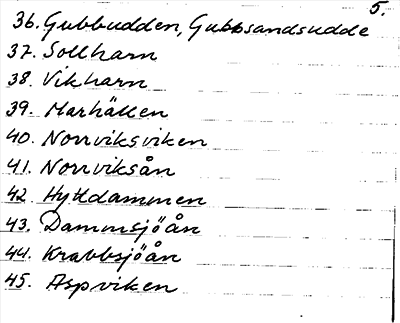 5.
36. Gubbudden, Gubbsandsudde
37. Sollharn
38. Vikharn
39. Marhällen
40. Norrviksviken
41. Norrviksån
42 Hyttdammen
43. Dammsjöån
44. Krabbsjöån
45. Aspviken